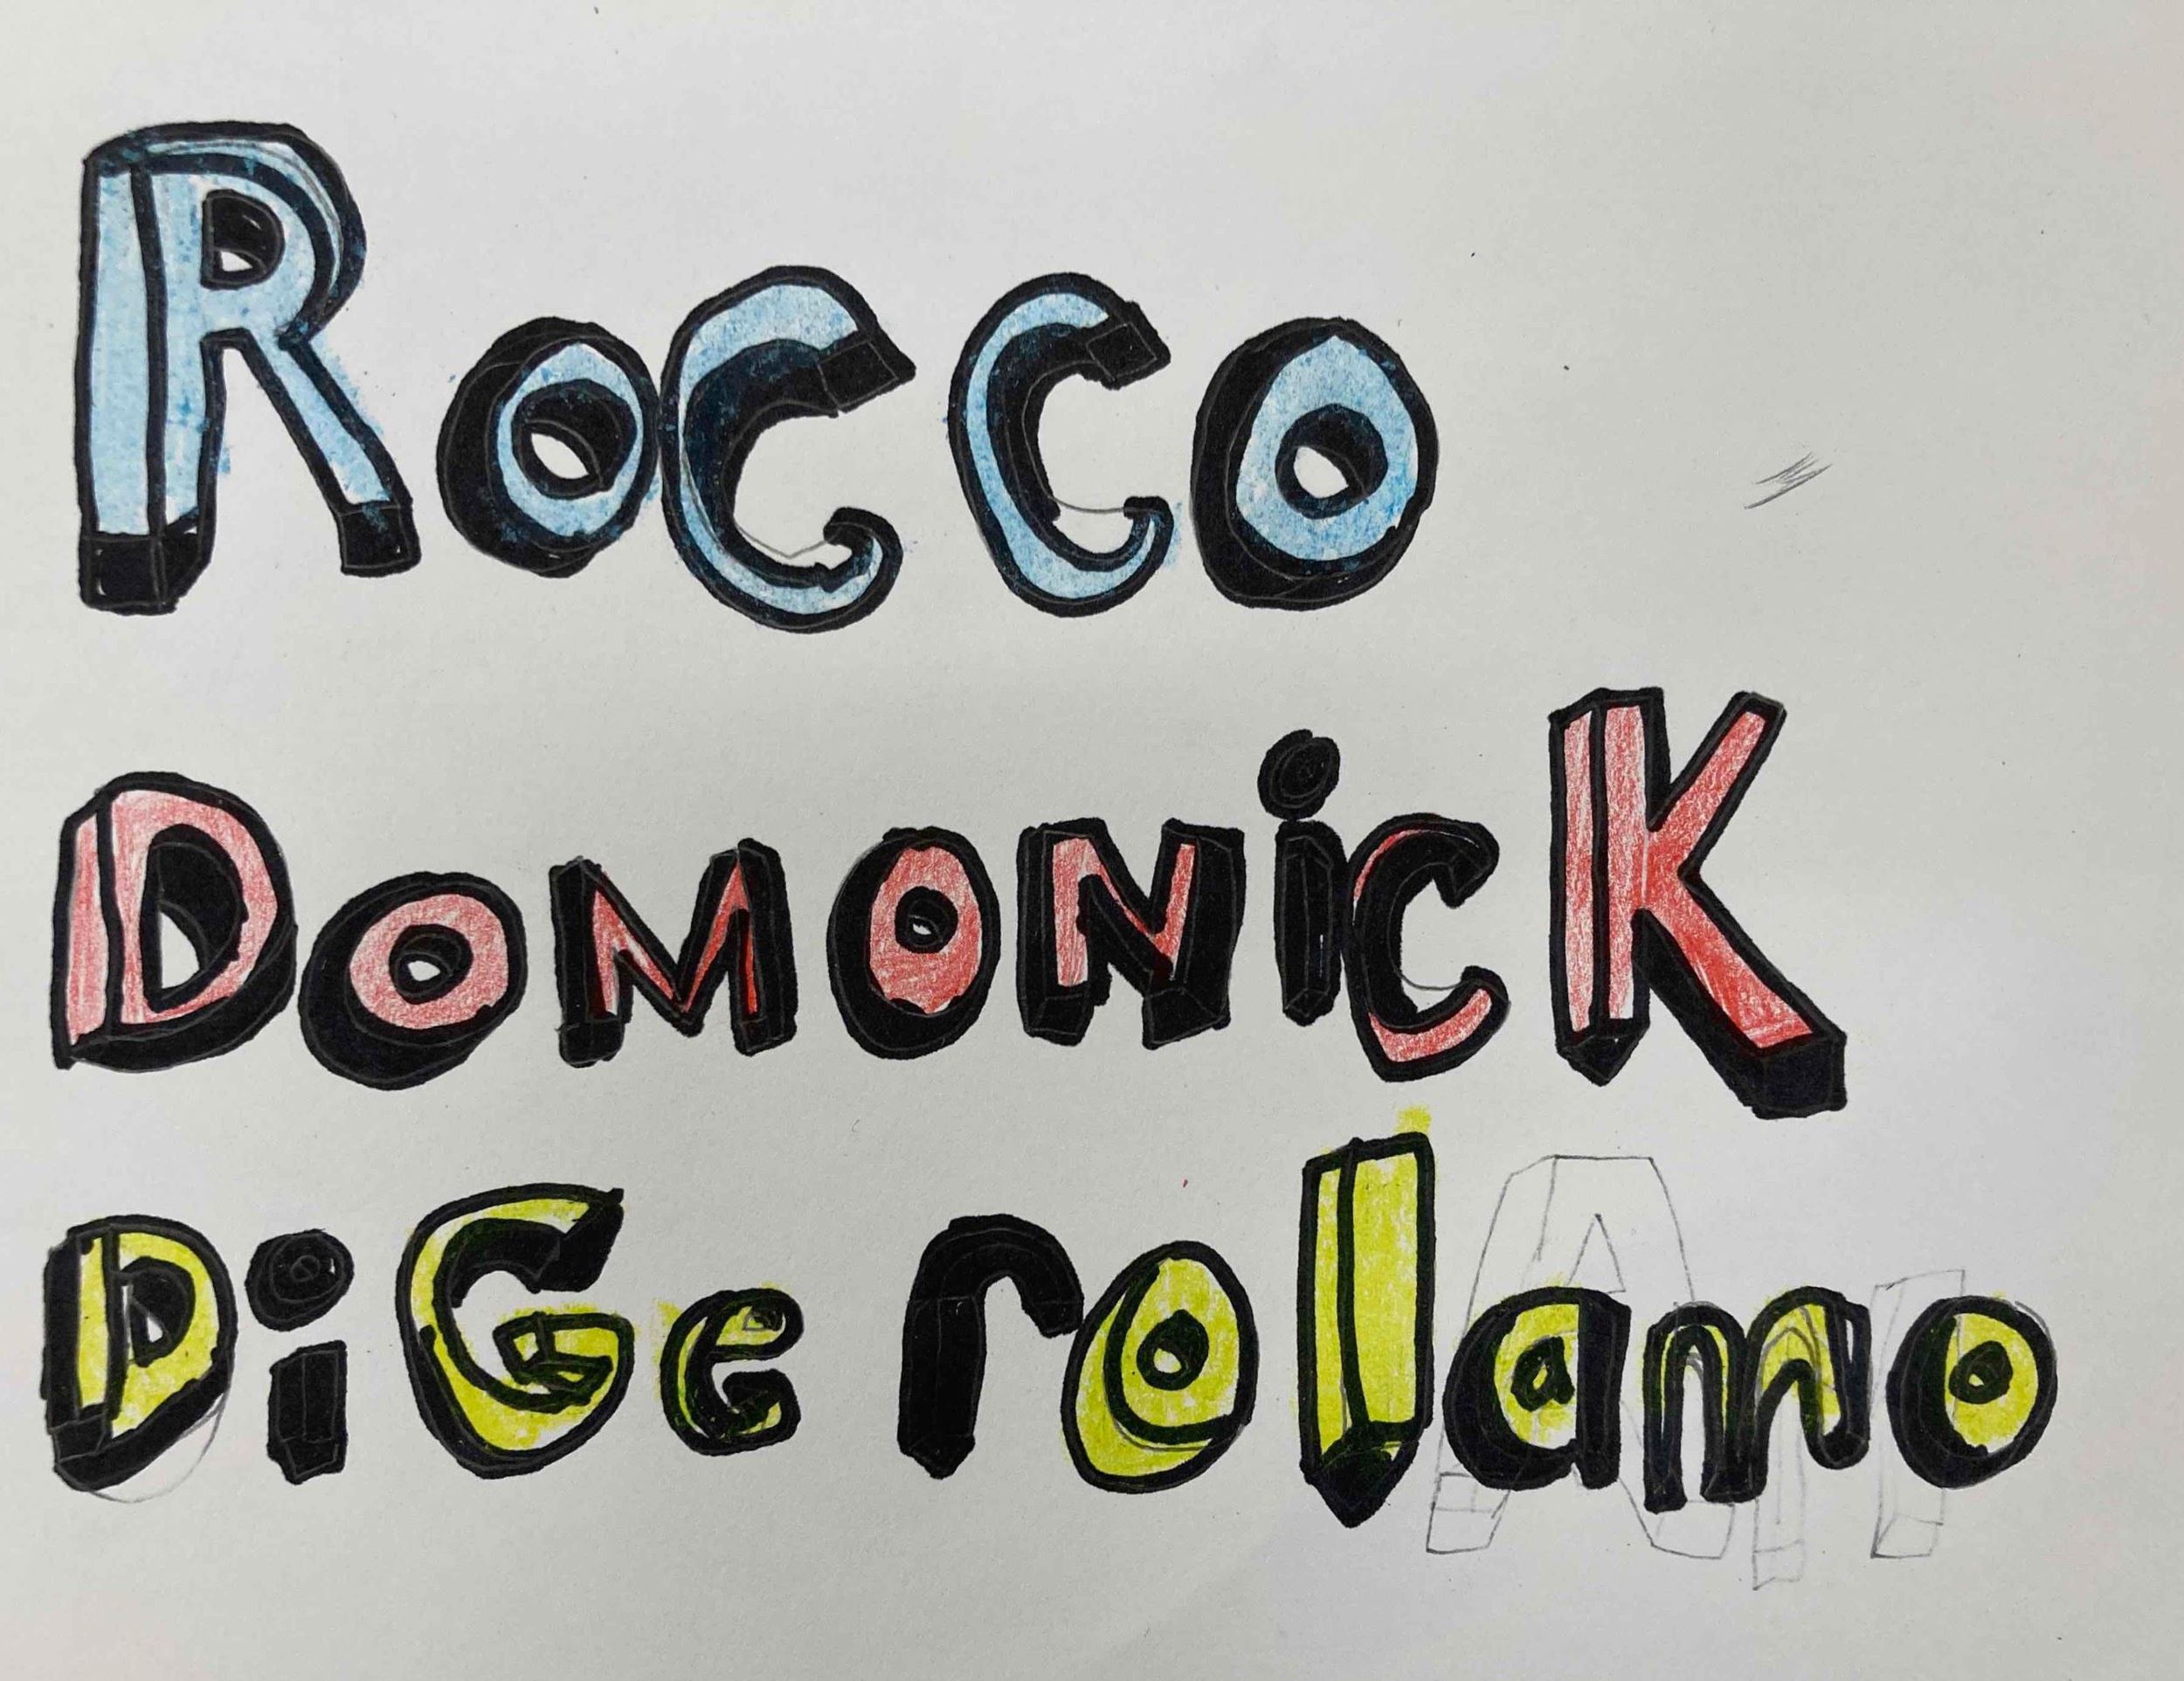 Rocco
DOMONicK
DiGerolamo